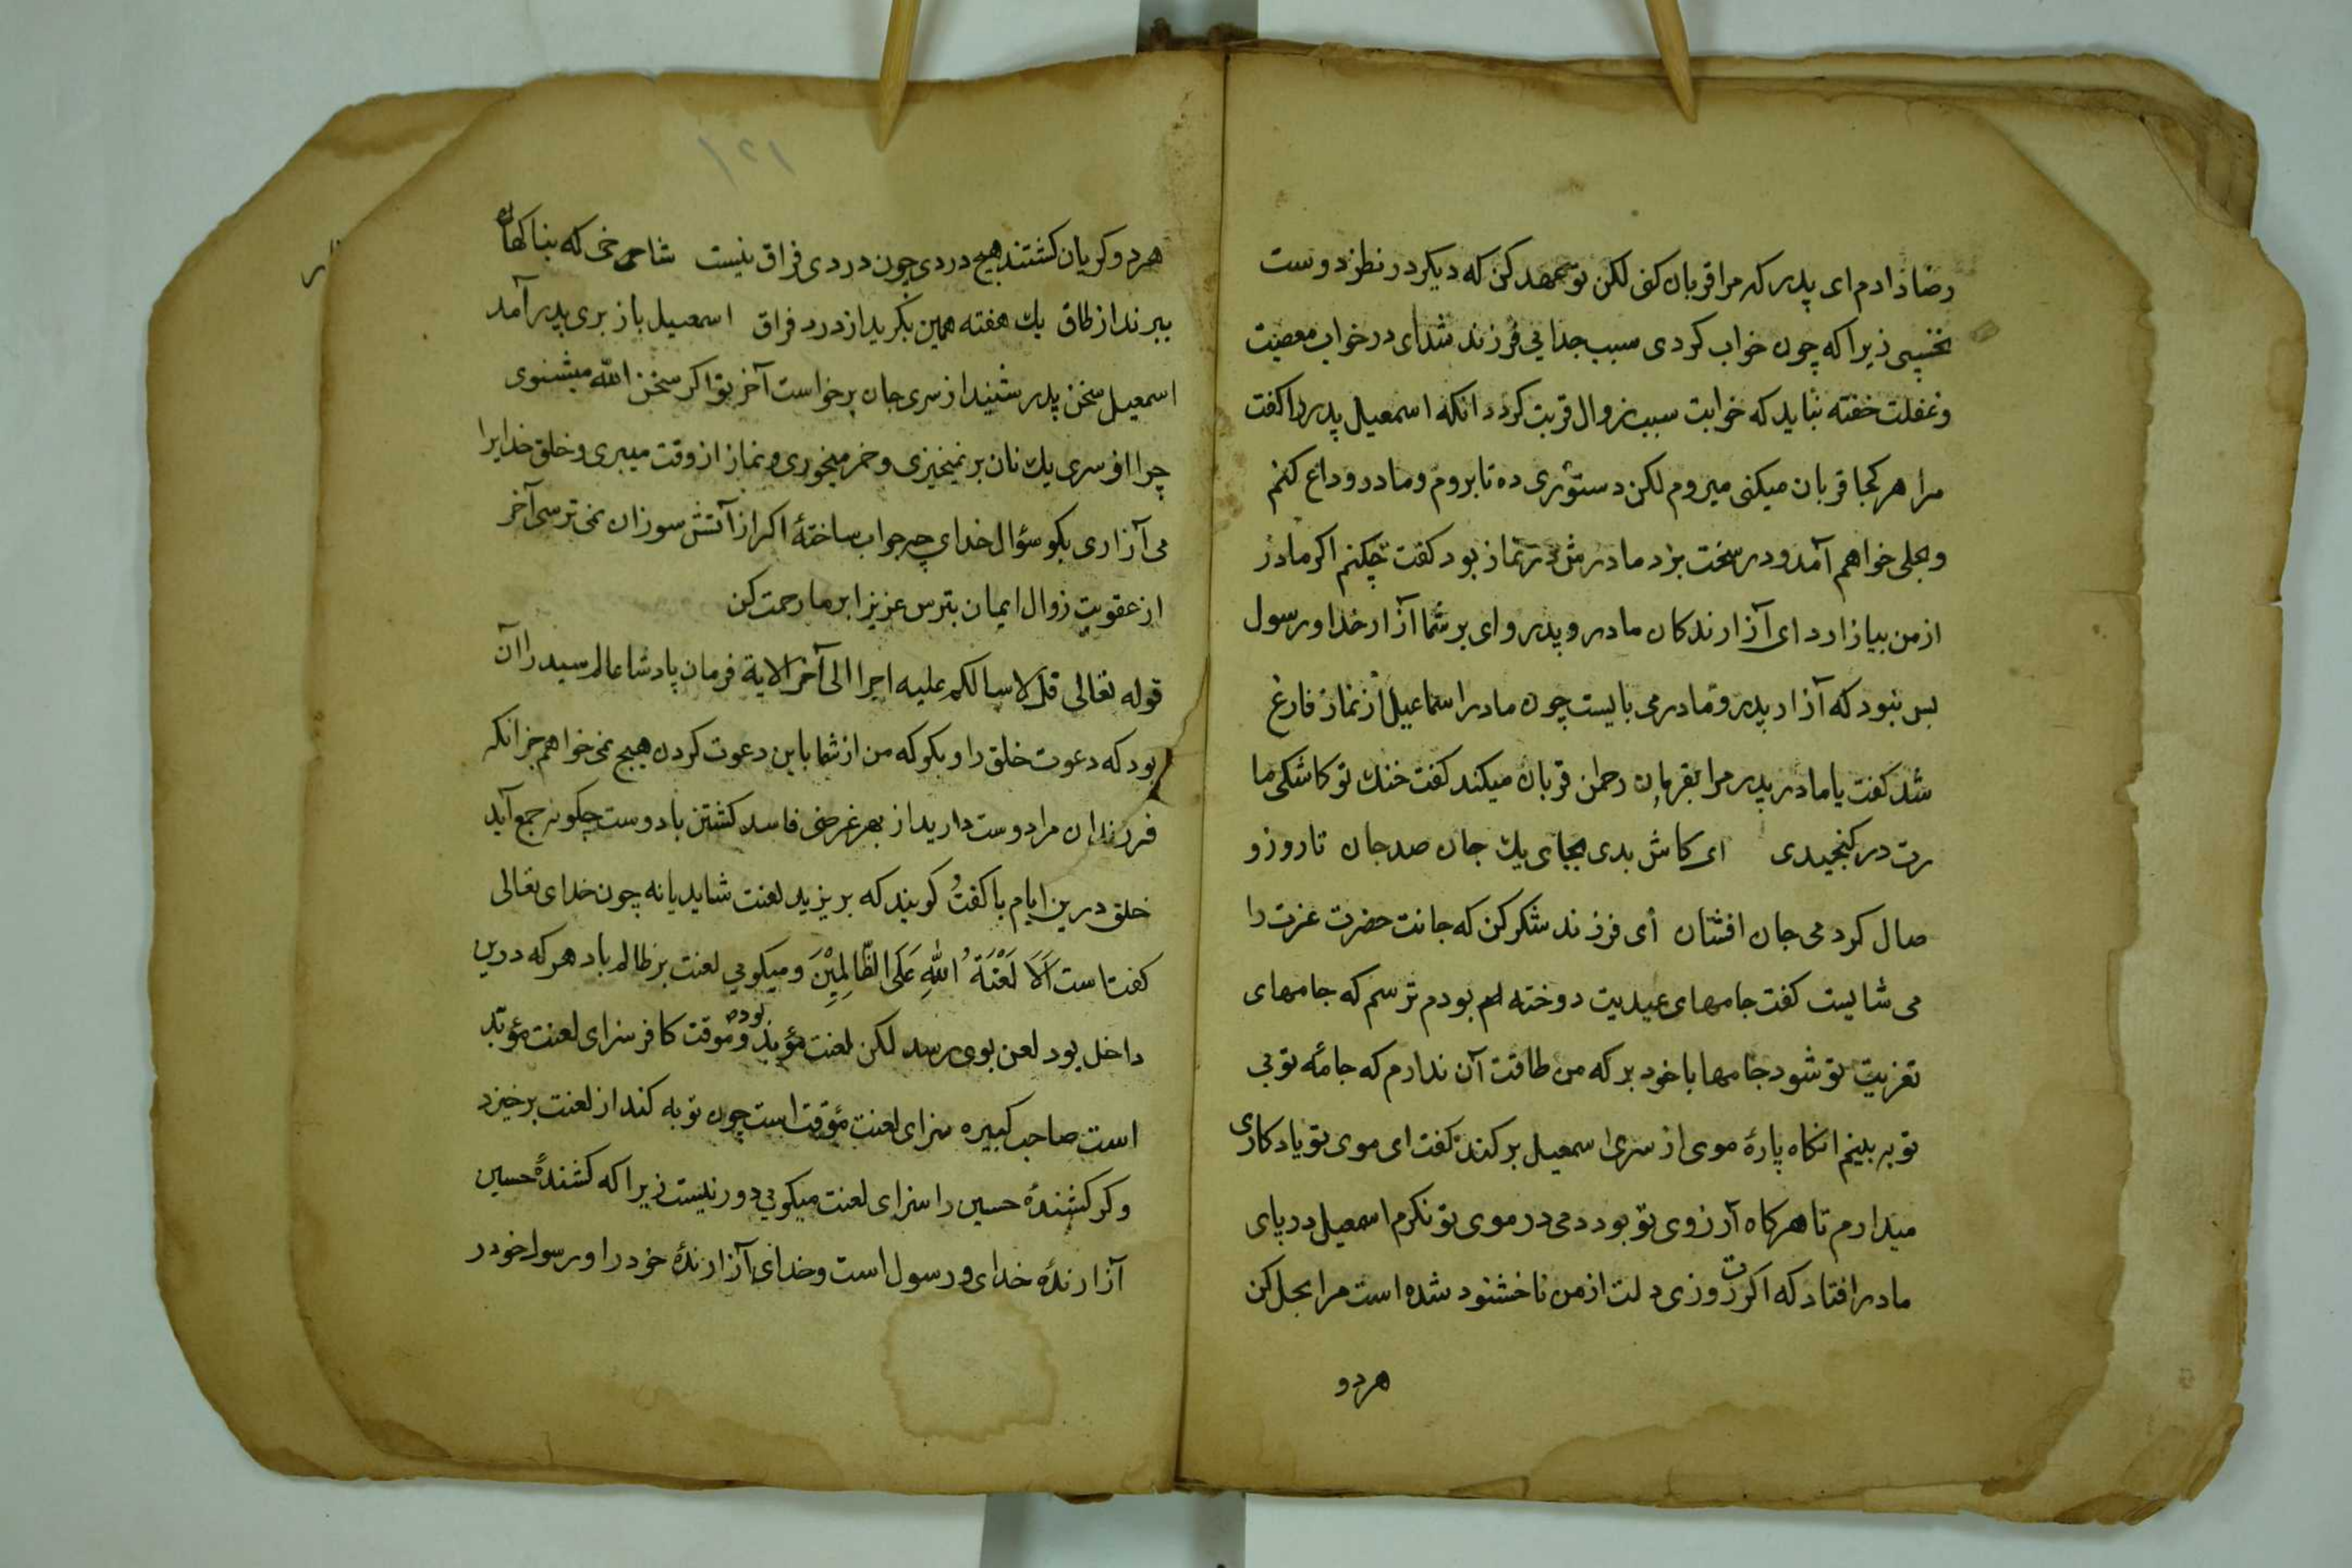 رضا دادم ای پدر که مرا قربان کنی لکن تو عهد کن که دیکر در نظر دوست
نخسپی زیرا که چون خواب کردی سبب جدایی فرزند شد ای در خواب معصیت
و غفلت خفته نباید که خوابت سبب زوال قربت کردد انکه اسمعیل پدر را کفت
مرا هر کجا قربان میکنی میروم لکن دستوری ده تا بروم و مادر وداع کنم
و بحلی خواهم آمد و درسخت بزد مادرش در نماز بود کفت چکنم اکر مادر
از من بیازارد ای آزارندکان مادر و پدر وای بر شما آزار خدا و رسول
بس نبود که آزار پدر و مادر می بایست چون مادر اسماعیل از نماز فارغ
شد کفت یا مادر پدر مرا بفرمان رحمن قربان میکند کفت خنك تو کاشکی ما
رت در کنجیدی ای کاش بدی بجای یك جان صد جان تا روز و
صال کردمی جان افشان ای فرزند شکر کن که جانت حضرت عزت را
می شایست کفت جامهای عیدیت دوخته ام بودم ترسم که جامهای
تعزیت تو شود جامها با خود بر که من طاقت آن ندارم که جامهٔ تو بی
تو به بینم انکاه پارهٔ موی از سری اسمعیل برکند کفت ای موی تو یادکاری
میدارم تا هرکاه آرزوی تو بود دمی در موی تو نکرم اسمعیل در پای
مادر افتاد که اکرت روزی دلت از من ناخشنود شده است مرا بحل کن
هردو
۱۲۱
هردو کریان کشتند هیچ دردی چون دردی فراق نیست شاخی که بناکهان
ببرند از طاق یك هفته همین بکرید از درد فراق اسمعیل باز بری پدر آمد
اسمعیل سخن پدر شنید از سری جان برخواست آخر تو اکر سخن الله میشنوی
چرا از سری یك نان برنمیخیزی و خمر میخوری و نماز از وقت میبری و خلق خدایرا
می آزاری بکو سؤال خدای چه جواب ساختهٔ اکر از آتش سوزان نمی ترسی آخر
از عقوبت زوال ایمان بترس عزیزا بر ما رحمت کن
قوله تعالی قل لا اسالکم علیه اجرا الی آخر الایة فرمان پادشا عالم سید را آن
بود که دعوت خلق را و بکو که من از شما باین دعوت کردن هیچ نمی خواهم جز انکه
فرزندان مرا دوست دارید از بهر غرضی فاسد کشتن با دوست چکونه جمع آید
خلق درین ایام با کفت کویند که بر یزید لعنت شاید یا نه چون خدای تعالی
کفتاست اَلَا لَعْنَةُ اللّٰهِ عَلَی الظَّالِمِیْنَ و میکویی لعنت بر ظالم باد هر که درین
داخل بود لعن بوی رسد لکن لعنت مؤبد بوده و موقت کافر سزای لعنت مؤبد
است صاحب کبیره سزای لعنت مؤقت است چون توبه کند از لعنت برخیزد
و کر کشندهٔ حسین را سزای لعنت میکویی دور نیست زیرا که کشندهٔ حسین
آزارندهٔ خدای و رسول است و خدای آزارندهٔ خود را و رسول خود ر